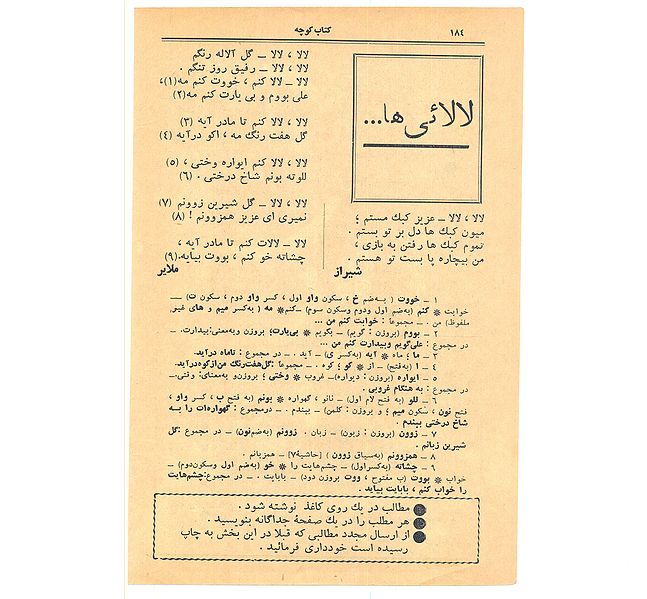 ۱۸٤
کتاب کوچه
لالائی‌ها...
لالا ، لالا ــ عزیز کبك مستم ؛
میون کبك ها دل بر تو بستم .
تموم کبك ها رفتن به بازی ،
من بیچاره پا بست تو هستم .
شیراز
لالا ، لالا ــ گل آلاله رنگم
لالا ، لالا ــ رفیق روز تنگم .
لالا ــ لالا کنم ، خووت کنم مه(۱)،
علی بووم و بی یارت کنم مه(۲)
لالا ، لالا کنم تا مادر آیه (۳)
گل هفت رنگ مه ، اکو درآیه (٤)
لالا ، لالا کنم ایواره وختی ، (۵)
للوته بونم شاخ درختی . (٦)
لالا ، لالا ــ گل شیرین زوونم (۷)
نمیری ای عزیز همزوونم ! (۸)
لالا ــ لالات کنم تا مادر آیه ،
چشاته خو کنم ، بووت بیایه.(۹)
ملایر
۱ ــ خووت ( به‌ضم خ ، سکون واو اول ، کسر واو دوم ، سکون ت) ــ
خوابت * کنم (به‌ضم اول ودوم وسکون سوم) ــکنم* مه ( به‌کسر میم و های غیر
ملفوظ) من . ــ مجموعاً : خوابت کنم من ...
۲ ــ بووم (بروزن : گویم) ــ بگویم * بی‌یارت؛ بروزن وبه‌معنی:بیدارت. ــ
در مجموع : علی‌گویم وبیدارت کنم من ...
۳ ــ ما ؛ ماه * آیه (به‌کسر ی) ــ آید . ــ در مجموع : تاماه درآید.
٤ ــ ا (به‌فتح) ــ از * کو ؛ کوه . ــ مجموعاً :گل‌هفت‌رنگ من‌ازکوه‌درآید.
۵ ــ ایواره (بروزن : دیواره)ــ غروب * وختی ؛ بروزن‌و به‌معنای: وقتی.ــ
در مجموع : به هنگام غروبی .
٦ ــ للو (به فتح لام اول) ــ نانو ، گهواره * بونم (به فتح ب ، کسر واو ،
فتح نون ، سکون میم ؛ و بروزن : کلمن) ــ ببندم . ــ درمجموع : گهواره‌ات را به
شاخ درختی ببندم .
۷ ــ زوون (بروزن : زبون) ــ زبان . زوونم (به‌ضم‌نون) ــ در مجموع :گل
شیرین زبانم .
۸ ــ همزوونم (به‌سیاق زوون ) [حاشیهٔ۷] ــ همزبانم .
۹ ــ چشاته (به‌کسراول) ــ چشم‌هایت را * خو (به‌ضم اول وسکون‌دوم)ــ
خواب * بووت (ب مفتوح ، ووت بروزن دود) ــ بابایت . ــ در مجموع:چشم‌هایت
را خواب کنم ، بابایت بیاید .
مطالب در یك روی کاغذ نوشته شود .
هر مطلب را در یك صفحهٔ جداگانه بنویسید .
از ارسال مجدد مطالبی که قبلا در این بخش به چاپ
رسیده است خودداری فرمائید .